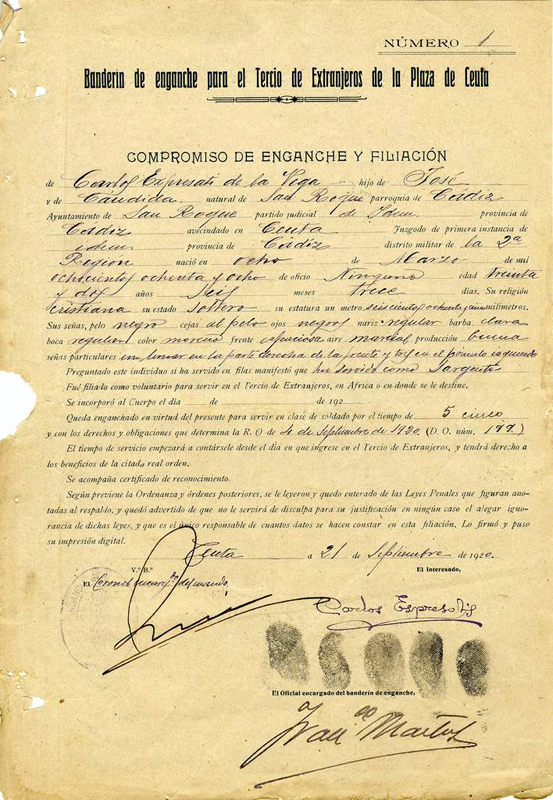 NÚMERO 1
Banderín de enganche para el Tercio de Extranjeros de la Plaza de Ceuta
COMPROMISO DE ENGANCHE Y FILIACIÓN
de Carlos Espresati de la Vega hijo de José
y de Cándida natural de San Roque parroquia de Cádiz
Ayuntamiento de San Roque partido judicial de Idem provincia de
Cádiz avecindado en Ceuta Juzgado de primera instancia de
idem provincia de Cádiz distrito militar de la 2ª
Región nació en ocho de Marzo de mil
ochocientos ochenta y ocho de oficio Ninguno edad treinta
y dos años Seis meses trece días. Su religión
Cristiana su estado soltero su estatura un metro seiscientos ochenta milímetros.
Sus señas, pelo negro cejas al pelo ojos negros nariz regular barba clara
boca regular color moreno frente espaciosa aire marcial producción buena
señas particulares un lunar en la parte derecha de la frente y en el izquierdo
Preguntado este individuo si ha servido en filas manifestó que ha servido como Sargento
Fué filiado como voluntario para servir en el Tercio de Extranjeros, en Africa o en donde se le destine.
Se incorporó al Cuerpo el día de de 192
Queda enganchado en virtud del presente para servir en clase de soldado por el tiempo de 5 cinco
y con los derechos y obligaciones que determina la R. O de 4 de Septiembre de 1920 (D. O. núm. 199)
El tiempo de servicio empezará a contársele desde el día en que ingrese en el Tercio de Extranjeros, y tendrá derecho a
los beneficios de la citada real orden.
Se acompaña certificado de reconocimiento.
Según previene la Ordenanza y órdenes posteriores, se le leyeron y quedo enterado de las Leyes Penales que figuran anotadas al respaldo, y quedó advertido de que no le servirá de disculpa para su justificación en ningún caso el alegar ignorancia de dichas leyes, y que es el único responsable de cuantos datos se hacen constar en esta filiación. Lo firmó y puso
su impresión digital.
Ceuta a 21 de Septiembre de 1920.
V.º B.º
El Coronel encarg.º del mando,
El Interesado,
Carlos Espresatis
El Oficial encargado del banderín de enganche,
Franco Martos